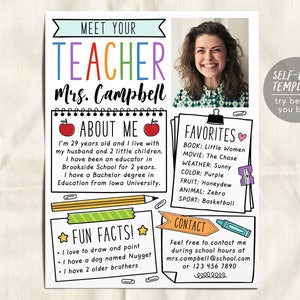 MEET YOUR
TEACHER
Mrs. Campbell
ABOUT ME
I'm 29 years old and I live with
my husband and 2 little children.
I have been an educator in
Brookside School for 2 years.
I have a Bachelor degree in
Education from Iowa University.
FAVORITES
BOOK: Little Women
MOVIE: The Chase
WEATHER: Sunny
COLOR: Purple
FRUIT: Honeydew
ANIMAL: Zebra
SPORT: Basketball
FUN FACTS!
• I love to draw and paint
• I have a dog named Nugget
• I have 2 older brothers
CONTACT
Feel free to contact me
during school hours at
mrs.campbell@school.com
or 123 456 7890